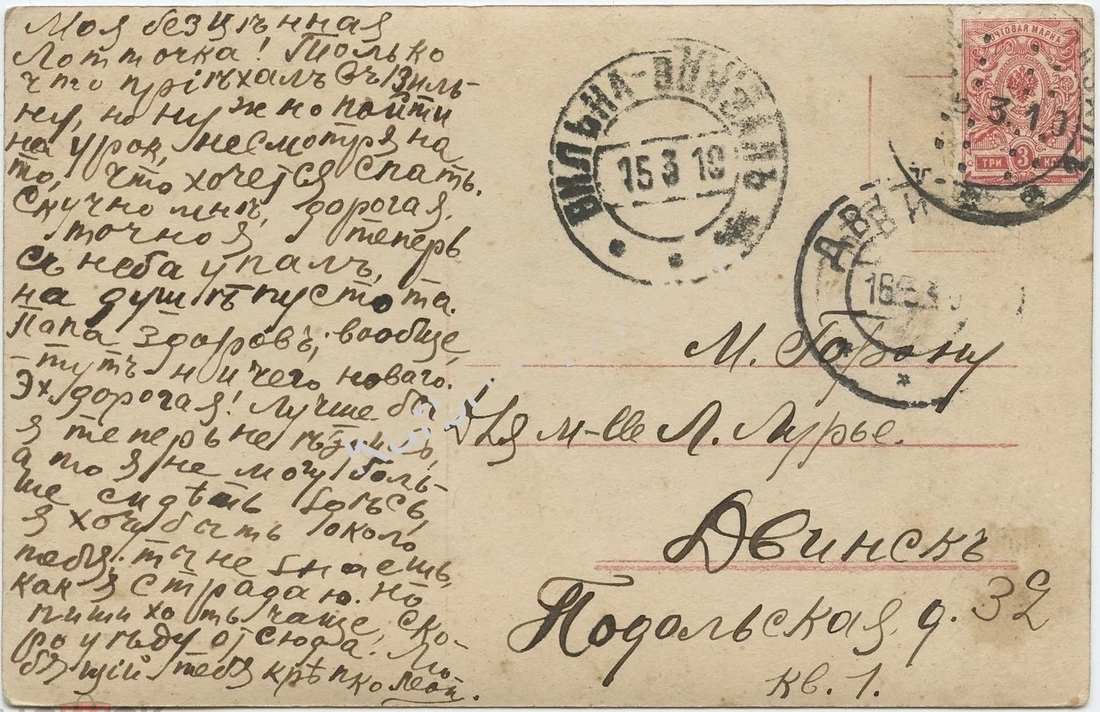 Моя безцѣнная
Лотточка! Только
что пріѣхалъ въ Виль-
ну, но нужно пойти
на урок, несмотря на
то, что хочется спать.
Скучно мнѣ, дорогая,
точно я теперь
съ неба упалъ,
на душѣ пустота.
Папа здоровъ, вообще,
тутъ ничего новаго.
Эх, дорогая! Лучше бы
я теперь не ѣздилъ,
а то я не могу боль-
ше сидѣть здѣсь,
я хочу быть около
тебя; ты не знаешь,
как я страдаю. Но
пиши хоть чаще. Ско-
ро уѣду отсюда. Лю-
бящій тебя крѣпко Леоп.
ВИЛЬНА-ВОКЗАЛЪ
15 3 10
ПОЧТОВАЯ МАРКА
ТРИ 3 КОП
3.10
ДВИНСКЪ
16 3
М. Гордону
Для м-lle Л. Лурье.
Двинскъ
Подольская, д. 32
кв. 1.